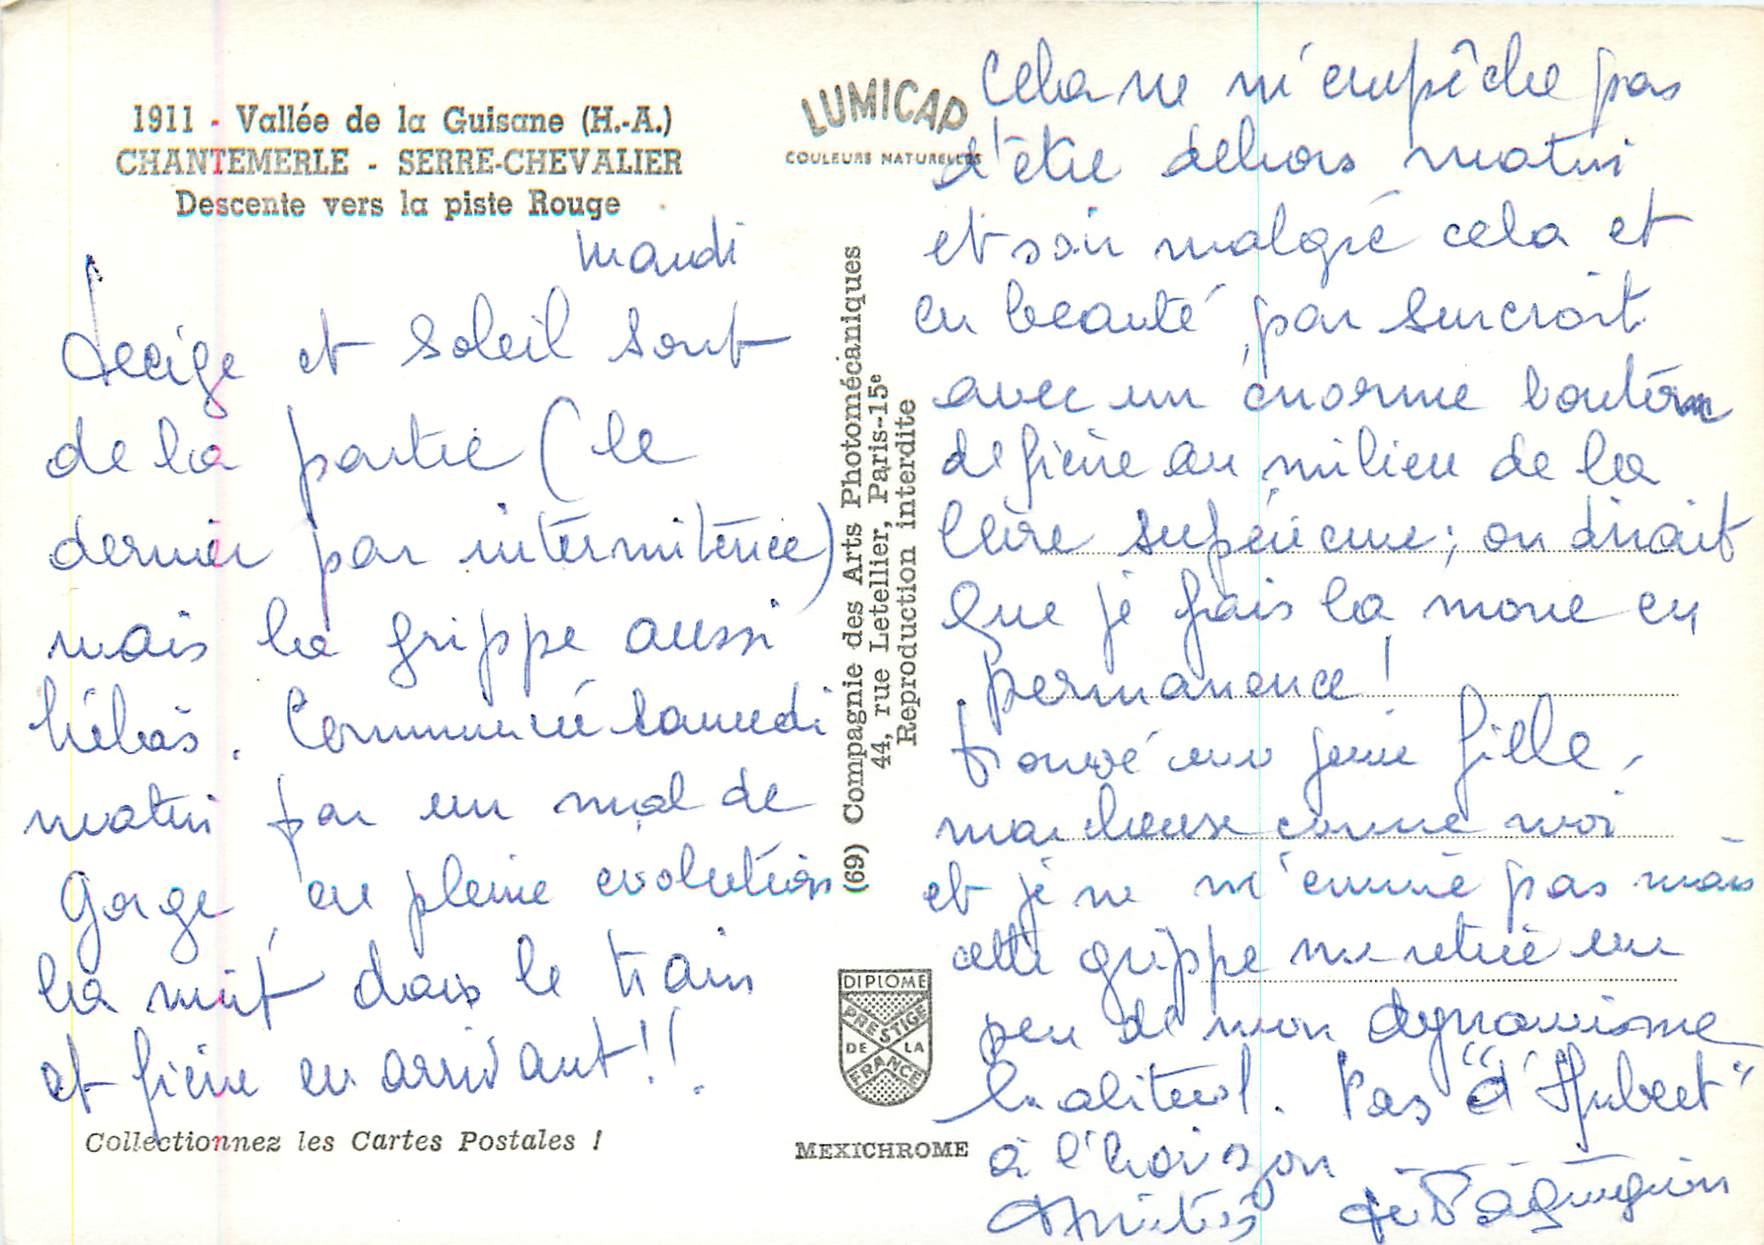 1911 - Vallée de la Guisane (H.-A.)
CHANTEMERLE - SERRE-CHEVALIER
Descente vers la piste Rouge
mardi
Neige et soleil sont
de la partie (le
dernier par intermitence)
mais la grippe aussi
hélas. Commencé samedi
matin par un mal de
Gorge, en pleine evolution
la nuit dans le train
et fièvre en arrivant!!.
Collectionnez les Cartes Postales !
LUMICAP
COULEURS NATURELLES
(69) Compagnie des Arts Photomécaniques
44, rue Letellier, Paris-15e
Reproduction interdite
DIPLOME
PRESTIGE
DE LA
FRANCE
MEXICHROME
Cela ne m'empêche pas
d'être dehors matin
et soir malgré cela et
en beauté par surcroit
avec un énorme bouton
de fièvre au milieu de la
lèvre supérieure; on dirait
que je fais la moue en
permanence!
trouvé une jeune fille,
marcheuse comme moi
et je ne m'ennuie pas mais
cette grippe me retire un
peu de mon dynamisme
habituel. Pas "d'Hubert"
à l'horizon
Amitiés de